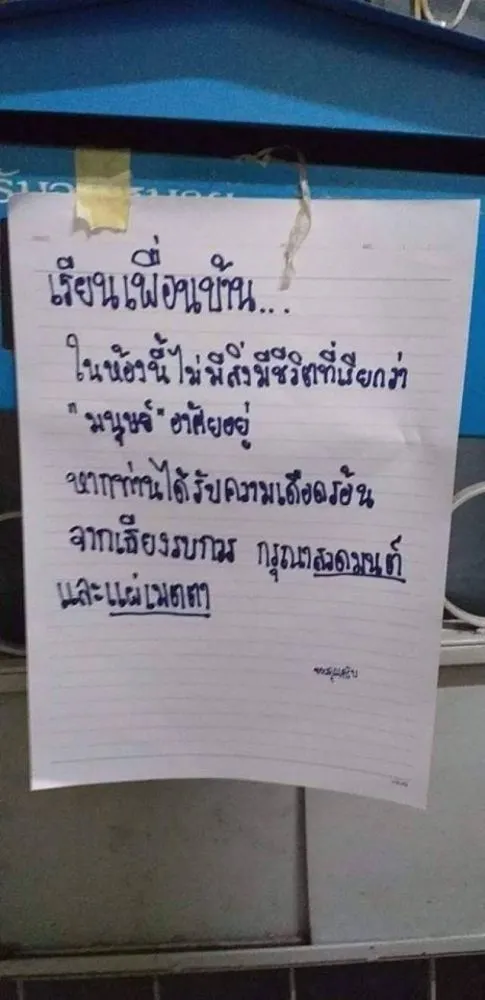 เรียนเพื่อนบ้าน...
ในห้องนี้ไม่มีสิ่งมีชีวิตที่เรียกว่า
"มนุษย์" อาศัยอยู่
หากท่านได้รับความเดือดร้อน
จากเสียงรบกวน กรุณาสวดมนต์
และแผ่เมตตา
ขอบคุณครับ